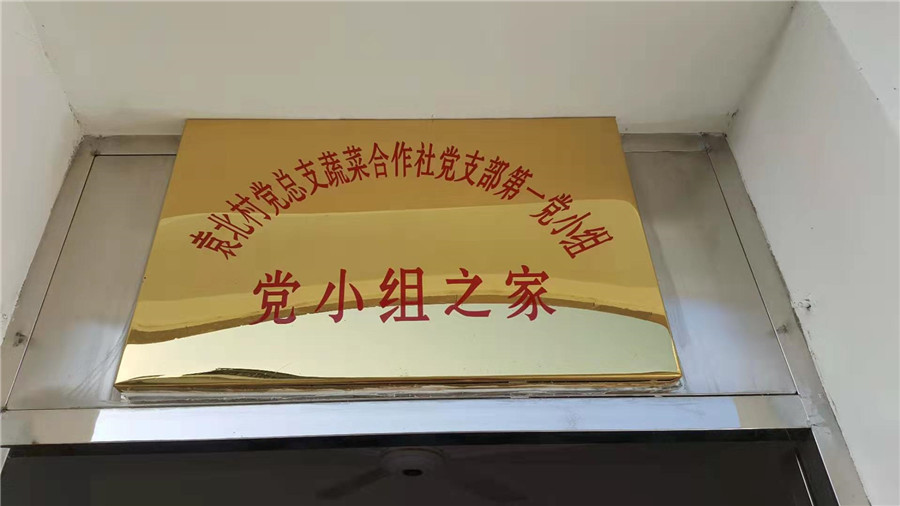 袁北村党总支蔬菜合作社党支部第一党小组
党小组之家